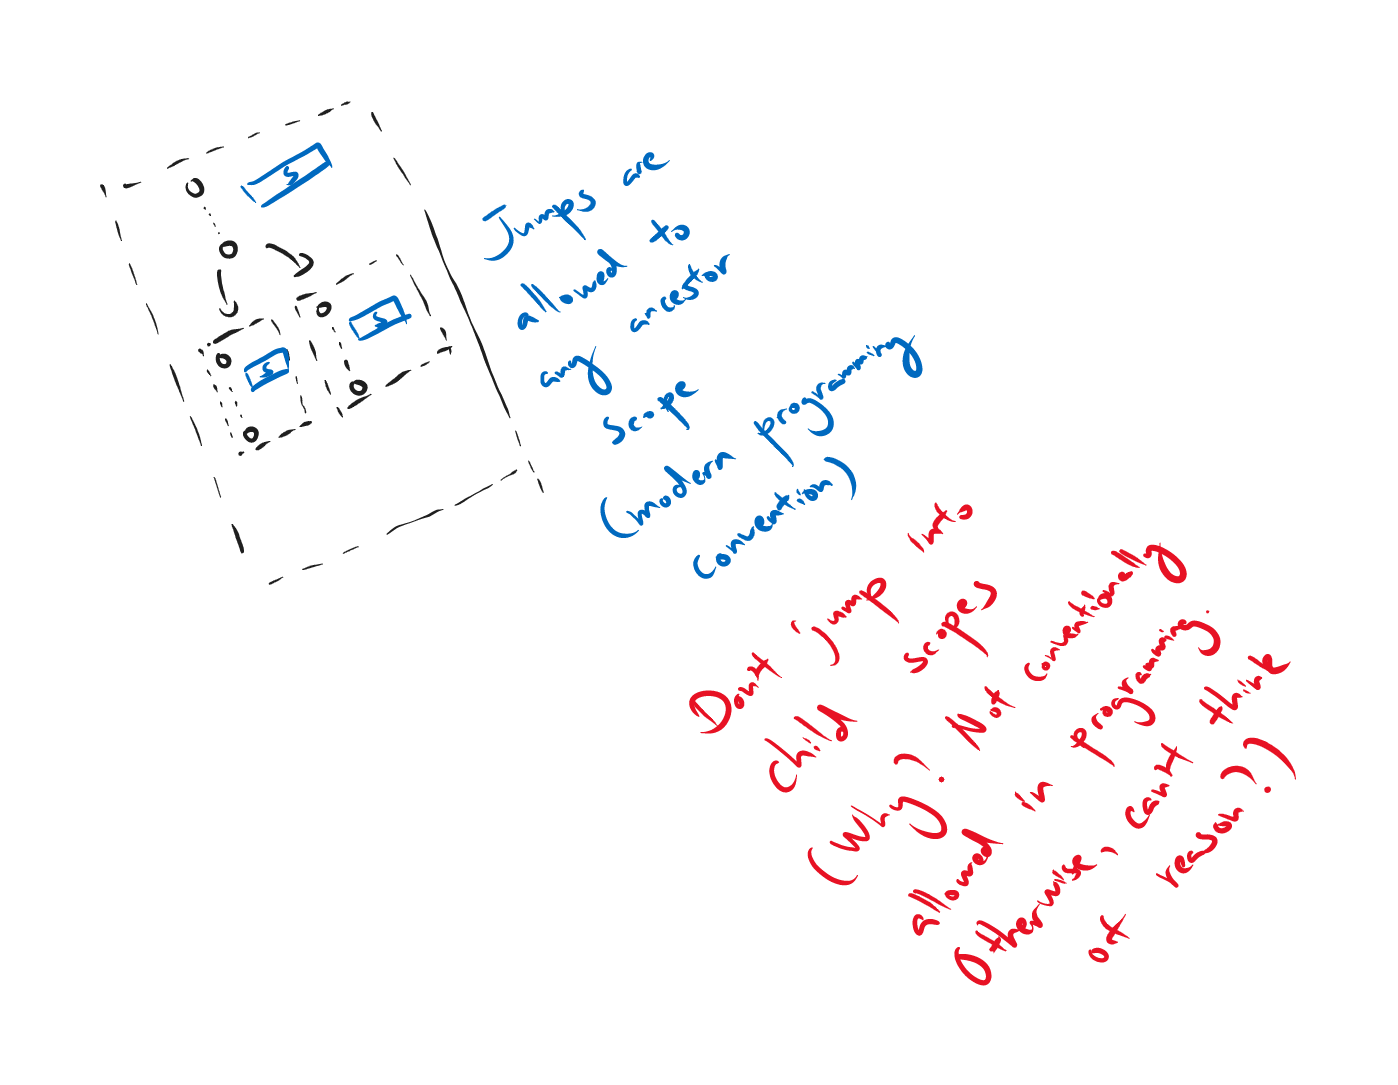 S
S
S
Jumps are
allowed to
any ancestor
scope
(modern programming
convention)
Don't jump into
child scopes
(Why? Not conventionally
allowed in programming.
Otherwise, can't think
of reason?)